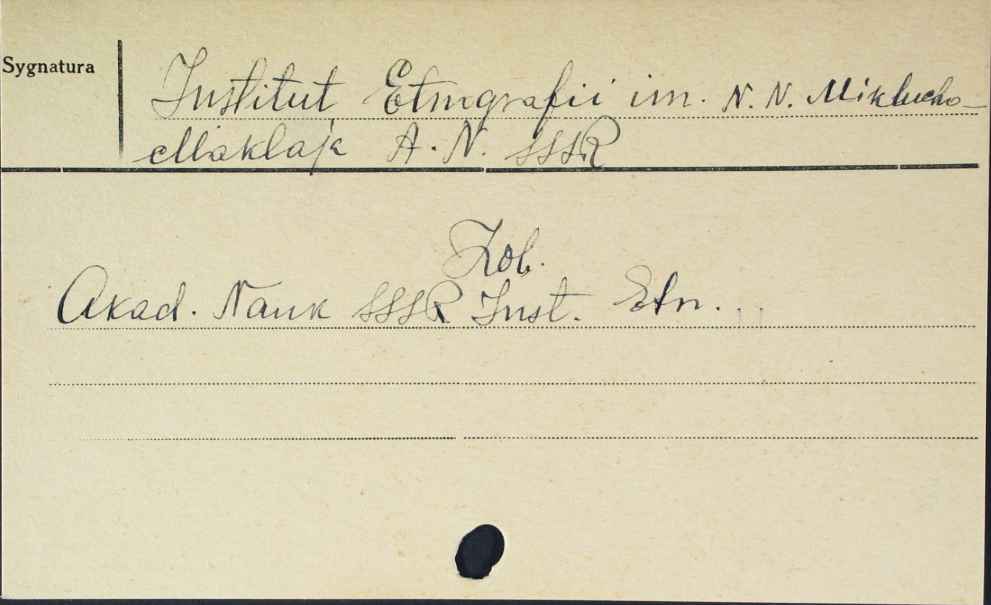 Sygnatura
Institut Etnografii im. N. N. Mikłucho-
Makłaja A. N. SSSR
Zob.
Akad. Nauk SSSR Inst. Etn...